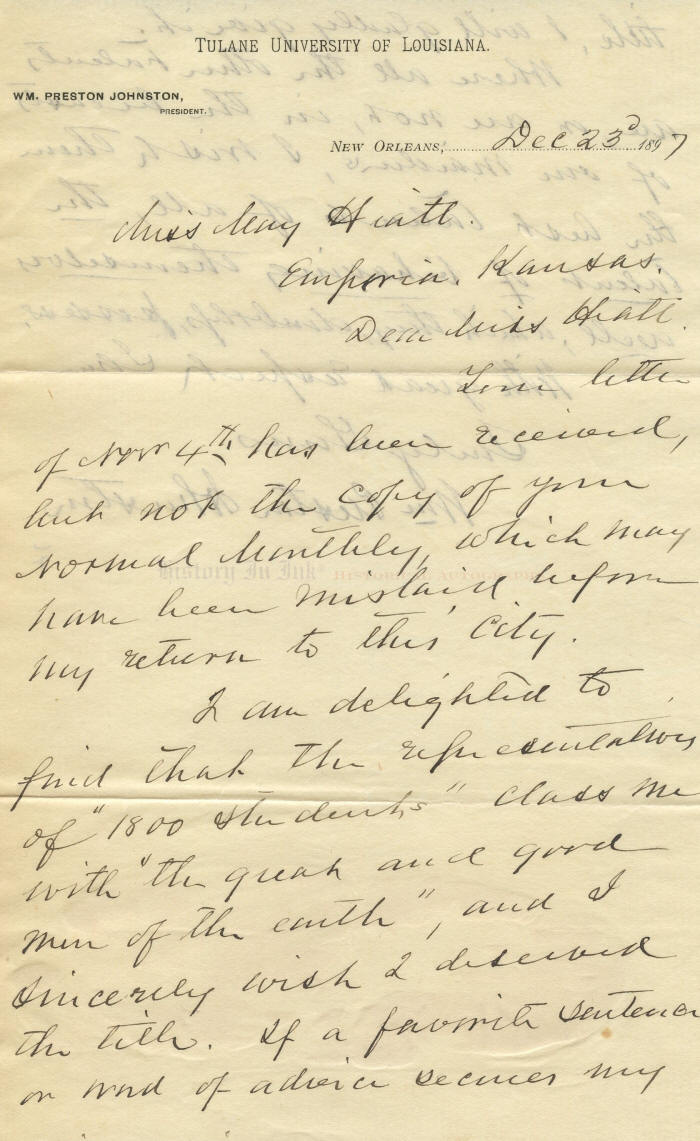 TULANE UNIVERSITY OF LOUISIANA.
WM. PRESTON JOHNSTON,
PRESIDENT.
NEW ORLEANS, Dec 23d 1897
Miss May Hiatt.
Emporia. Kansas.
Dear Miss Hiatt.
Your letter
of Nov 4th has been received,
but not the copy of your
Normal Monthly, which may
have been mislaid before
my return to this City.
I am delighted to
find that the representatives
of "1800 students" class me
with "the great and good
men of the earth", and I
sincerely wish I deserved
the title. If a favorite sentence
or word of advice secures my
History In Ink® HISTORICAL AUTOGRAPHS